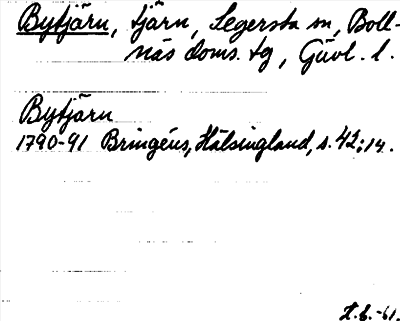 Bytjärn, tjärn, Segersta sn, Boll-
näs doms. tg, Gävl. l.
Bytjärn
1790-91 Bringéus, Hälsingland, s. 42; 14.
H.b.-61.